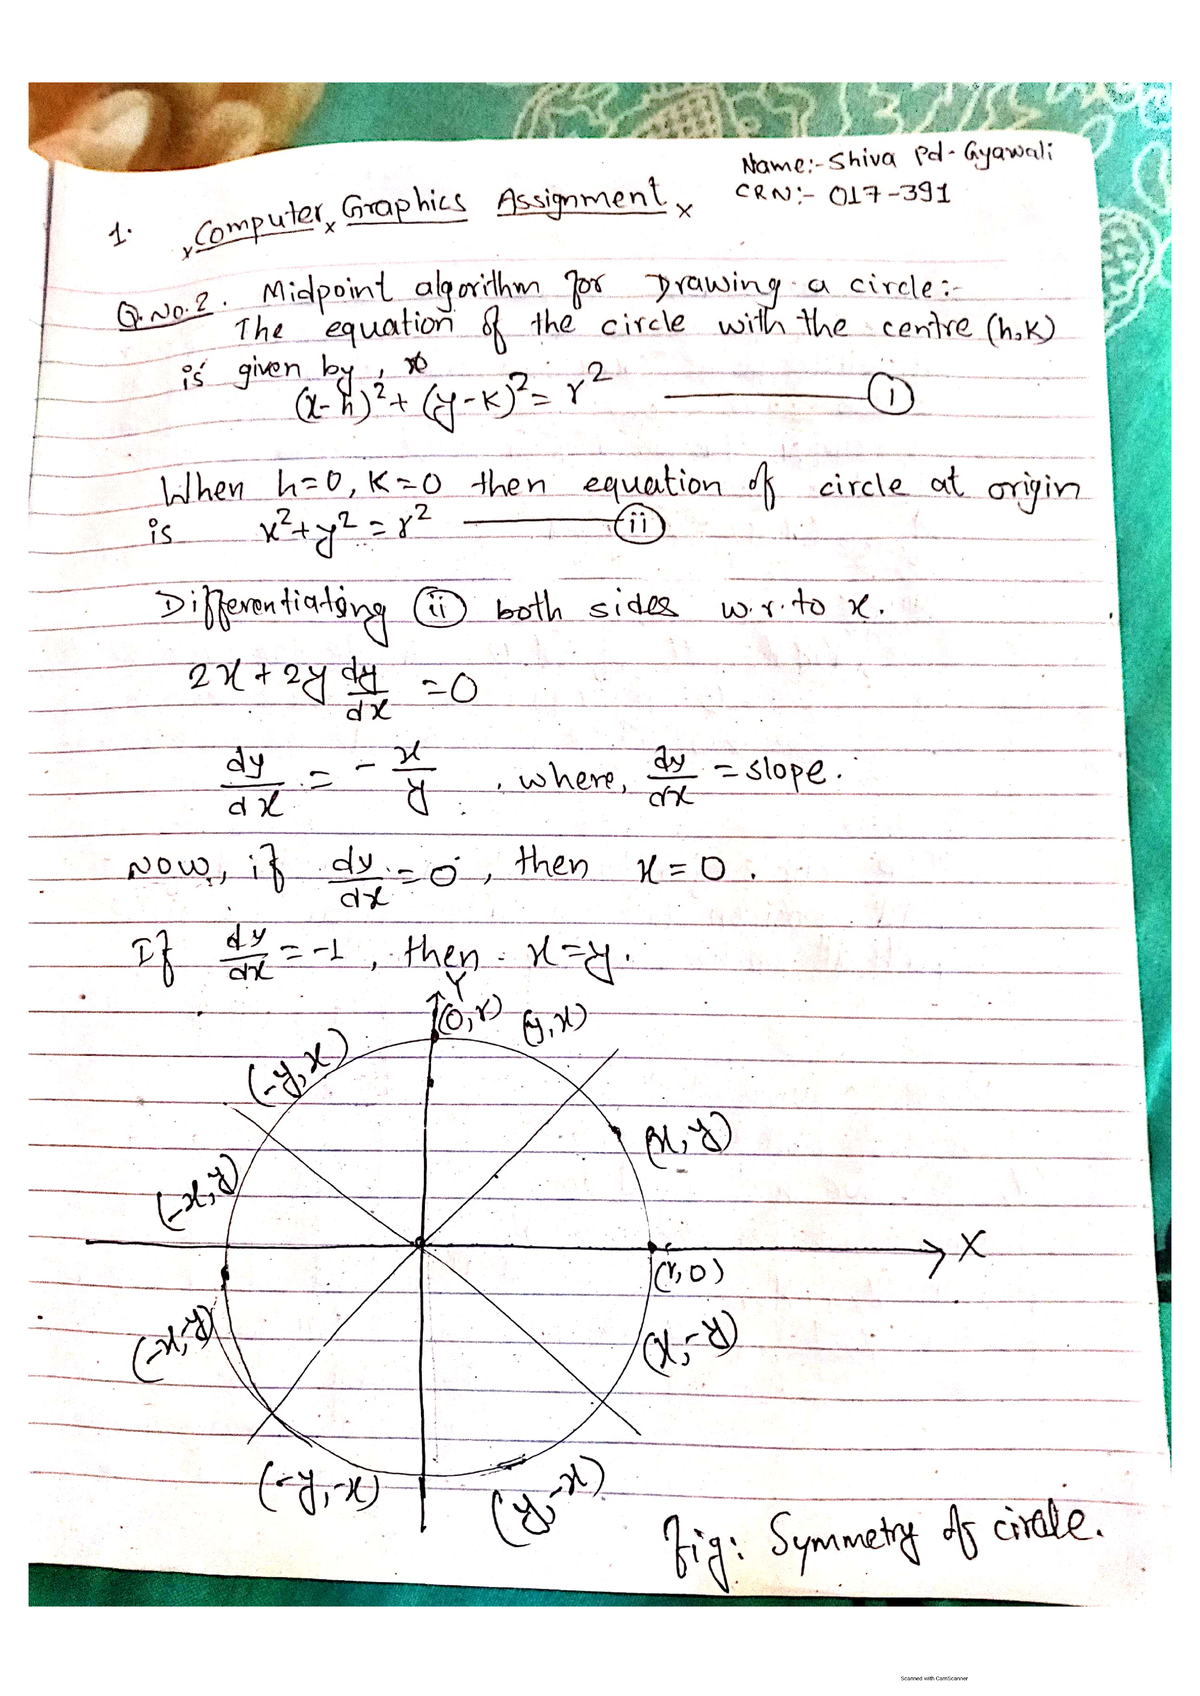 Name:- Shiva Pd. Gyawali
CRN:- 017-391
1. x Computer x Graphics Assignment x
Q.No.2. Midpoint algorithm for Drawing a circle:-
The equation of the circle with the centre (h,k)
is given by,
(x-h)²+(y-k)²=r² ——— (i)
When h=0, k=0 then equation of circle at origin
is x²+y²=r² ——— (ii)
Differentiating (ii) both sides w.r.to x.
2x + 2y dy/dx = 0
dy/dx = - x/y, where, dy/dx = slope.
Now, if dy/dx = 0, then x = 0.
If dy/dx = -1, then x=y.
Y
(0,r) (y,x)
(-y,x)
(x,y)
(-x,y)
X
(r,0)
(-x,-y) (x,-y)
(-y,-x) (y,-x)
fig: Symmetry of circle.
Scanned with CamScanner